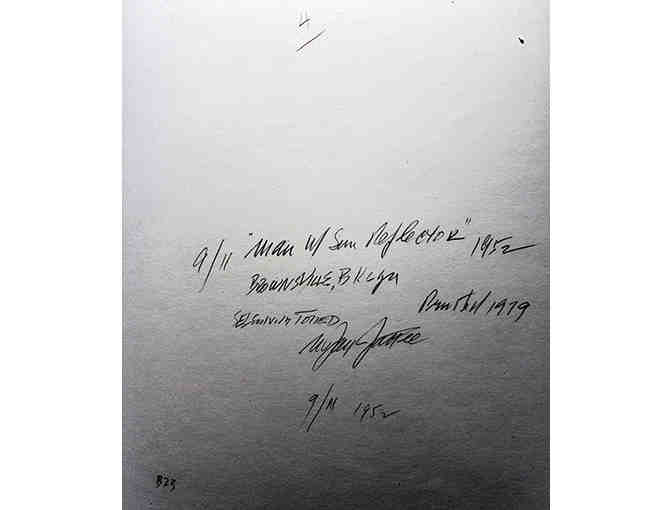 4
9/11 "Man w/ Sun Reflector" 1952
Brownsville, Bklyn
Printed 1979
SELENIUM TONED
N Jay Jaffee
9/11 1952
B23